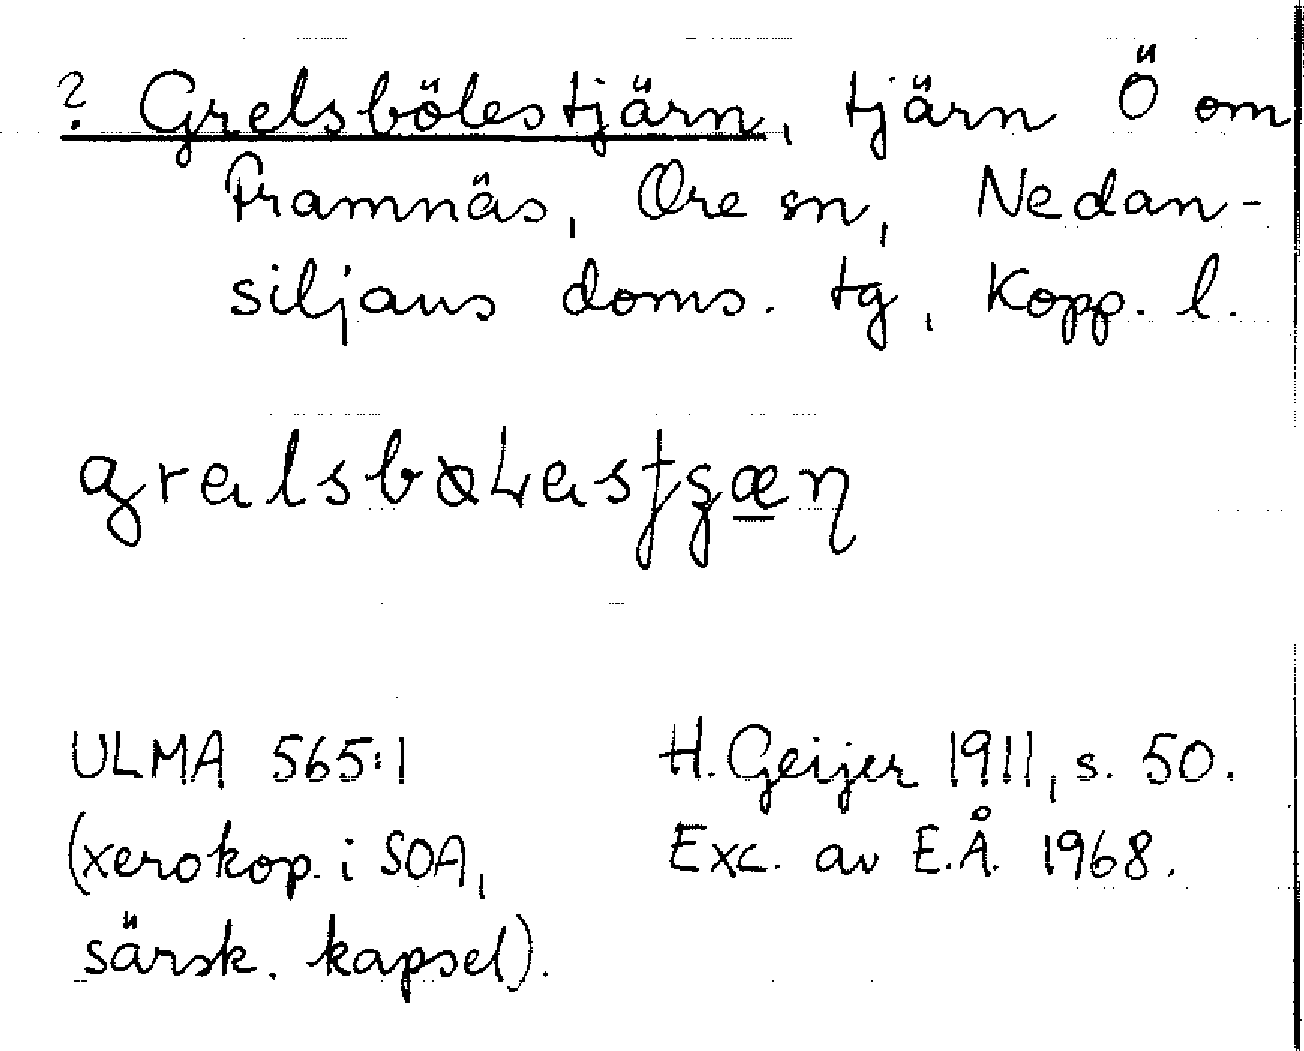 ? Grelsbölestjärn, tjärn Ö om
Framnäs, Ore sn, Nedan-
siljans doms. tg, Kopp. l.
ULMA 565:1
(xerokop. i SOA,
särsk. kapsel).
H. Geijer 1911, s. 50.
Exc. av E.Å. 1968.